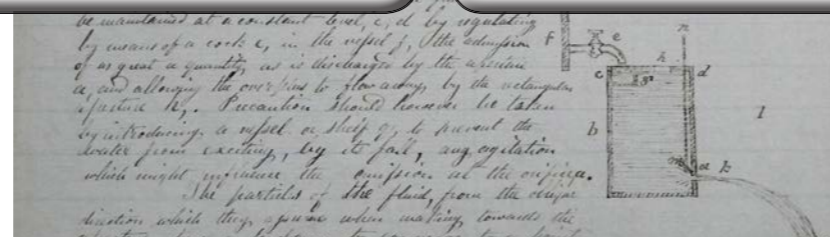 be maintained at a constant level, c, d by regulating
by means of a cock e, in the vessel f, the admission
of as great a quantity, as is discharged by the aperture
a, and allowing the overplus to flow away by the rectangular
aperture h,. Precaution should however be taken
by introducing a vessel or shelf g, to prevent the
water from exciting, by its fall, any agitation
which might influence the emission at the orifice.
The particles of the fluid, from the
direction which they assume when making towards the
f
e
n
c
h
d
g
b
l
a
k